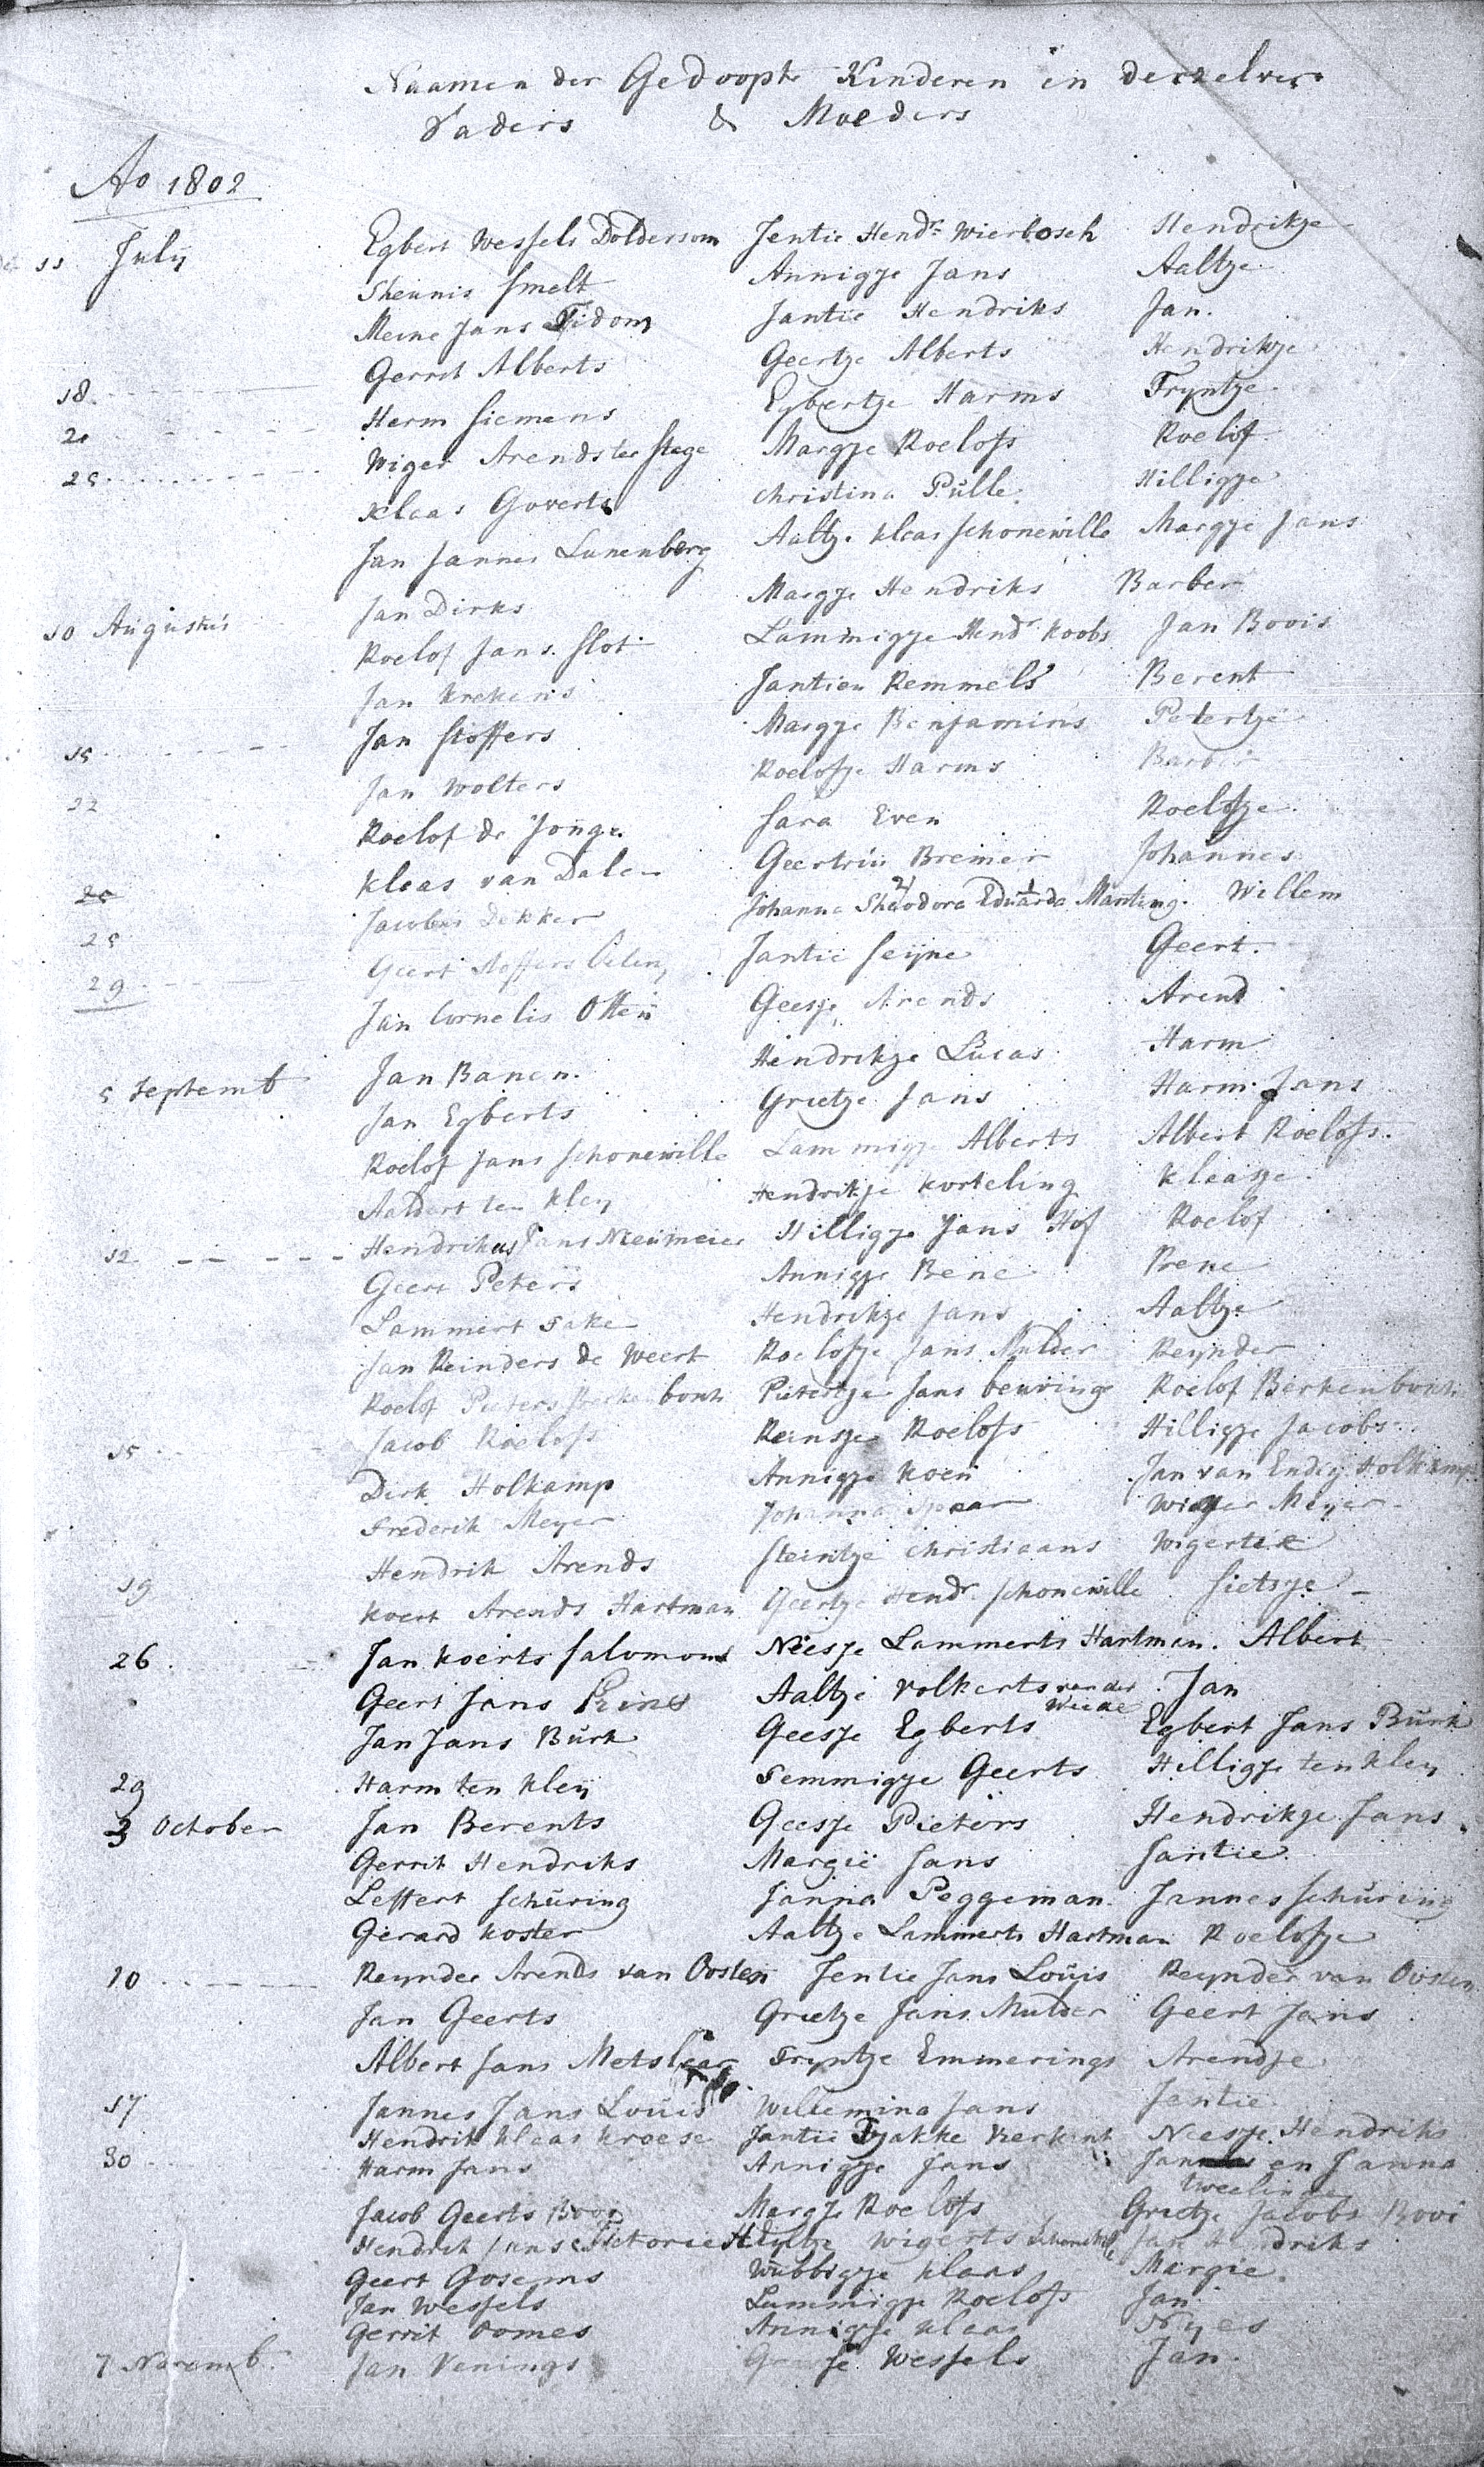 Naamen der Gedoopte Kinderen en derzelver
Vaders & Moeders
Ao 1802
11 July Egbert Wessels Doldersom Jentie Hendr Wierbosch Hendrikje
Theunis Smelt Annigje Jans Aaltje
Meine Jans Tidom Jantie Hendriks Jan.
Gerrit Alberts Geertje Alberts Hendrikje
18 Harm Siemens Egbertje Harms Tryntje
Wiger Arends ter Stege Margje Roelofs Roelof
25 Klaas Goverts Christina Pülle Hilligje
Jan Jannes Lunenberg Aaltje Klaas Schonewille Margje Jans
Jan Dirks Margje Hendriks Barber
10 Augustus Roelof Jans Slot Lammigje Hendr Koobs Jan Boois
Jan Krekens Jantien Remmels Berent
Jan Stoffers Margje Benjamins Petertje
15 Jan Wolters Roelofje Harms Barber
22 Roelof de Jonge Sara Even Roelofje
Klaas van Dalen Geertrui Bremer Johannes
Jacobus Dekker Johanna Theodora Eduarda Manting. Willem
25 Geert Stoffers Jantie Seijne Geert.
29 Jan Cornelis Otten Geesje Arends Arend
5 Septemb Jan Banen. Hendrikje Lucas Harm
Jan Egberts Grietje Jans Harm Jans
Roelof Jans Schonewille Lammigje Alberts Albert Roelofs.
Aaldert ten Kley Hendrikje Korteling Klaasje
12 Hendrikus Jans Nieumeier Hilligje Jans Hof Roelof
Geert Peters Annigje Bene Bene
Lammert Fake Hendrikje Jans Aaltje
Jan Reinders de Weert Roelofje Jans Mulder Reynder
Roelof Pieters Berkenbosch Pietertje Jans beuving Roelof Berkenbosch
15 Jacob Roelofs Reinsje Roelofs Hilligje Jacobs
Dirk Holkamp Annigje Koen Jan van Holkamp
Frederik Meyer Johanna Spaar Wieger Meyer
Hendrik Arends Steintje Christiaans Wigertie
19 Koert Arends Hartman Geertje Hendr Schonewille Sietsje
26 Jan Koerts Salomons Neesje Lammerts Hartman. Albert
Geert Jans Prins Aaltje Volkerts van der Weide Jan
Jan Jans Bürk Geesje Egberts Egbert Jans Bürk
29 Harm ten Kleij Femmigje Geerts Hilligje ten Kley
3 October Jan Berents Geesje Pieters Hendrikje Jans
Gerrit Hendriks Margie Jans Jantie
Leffert Schüring Janna Peggeman Jannes Schüring
Gerard Koster Aaltje Lammerts Hartman Roelofje
10 Reynder Arends van Oosten Jentie Jans Louis Reynder van Oosten
Jan Geerts Grietje Jans Mulder Geert Jans
Albert Jans Metslaar Tryntje Emmerings Arendje
17 Jannes Jans Louis Willemina Jans Jentie
Hendrik Klaas Kroese Jantie Neesje Hendriks
30 Harm Jans Annigje Jans en Janna
tweelingen
Jacob Geerts Booi Margje Roelofs Grietje Jacobs Booi
Hendrik Jans Wigerts Schonewille Jan Hendriks
Geert Gosems Wubbigje Klaas Margie
Jan Wessels Lammigje Roelofs Jan
Gerrit Oomes Annigje Klaas Nyes
7 Novemb. Jan Venings Wessels Jan.